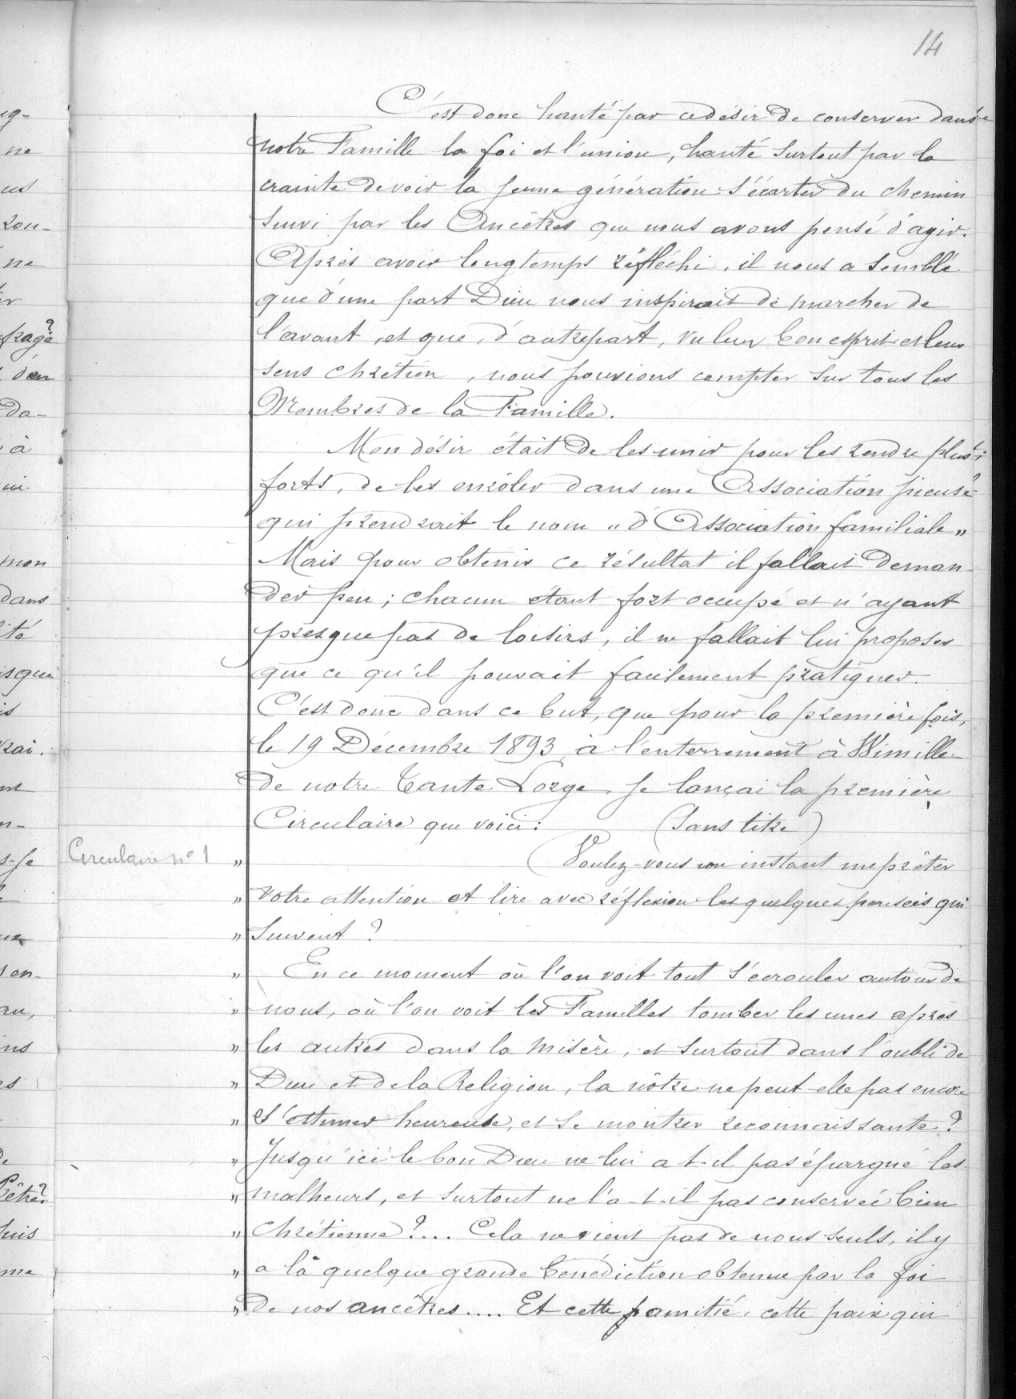 14
C'est donc hanté par ce désir de conserver dans
notre Famille la foi et l'union, hanté surtout par la
crainte de voir la jeune génération s'écarter du chemin
suivi par les Ancêtres que nous avons pensé d'agir.
Après avoir longtemps réfléchi, il nous a semblé
que d'une part Dieu nous inspirait de marcher de
l'avant, et que, d'autre part, vu leur bon esprit et leur
sens chrétien, nous pouvions compter sur tous les
Membres de la Famille.
Mon désir était de les unir pour les rendre plus
forts, de les enrôler dans une Association pieuse
qui prendrait le nom „ d'Association familiale „
Mais pour obtenir ce résultat il fallait deman-
der peu ; chacun étant fort occupé et n'ayant
presque pas de loisirs, il ne fallait lui proposer
que ce qu'il pouvait facilement pratiquer.
C'est donc dans ce but, que pour la première fois,
le 19 Décembre 1893 à l'enterrement à Wimille
de notre Tante Lorge, je lançai la première
Circulaire que voici : (Sans titre)
Circulaire n° 1 „ (Voulez-vous un instant me prêter
„ votre attention et lire avec réflexion les quelques pensées qui
„ suivent ?
„ En ce moment où l'on voit tout s'écrouler autour de
„ nous, où l'on voit les Familles tomber les unes après
„ les autres dans la misère, et surtout dans l'oubli de
„ Dieu et de la Religion, la nôtre ne peut-elle pas encore
„ s'estimer heureuse, et se montrer reconnaissante ?
„ Jusqu'ici le bon Dieu ne lui a t-il pas épargné les
„ malheurs, et surtout ne l'a-t-il pas conservée bien
„ chrétienne ?... Cela ne vient pas de nous seuls, il y
„ a là quelque grande bénédiction obtenue par la foi
„ de nos ancêtres.... Et cette amitié, cette paix qui